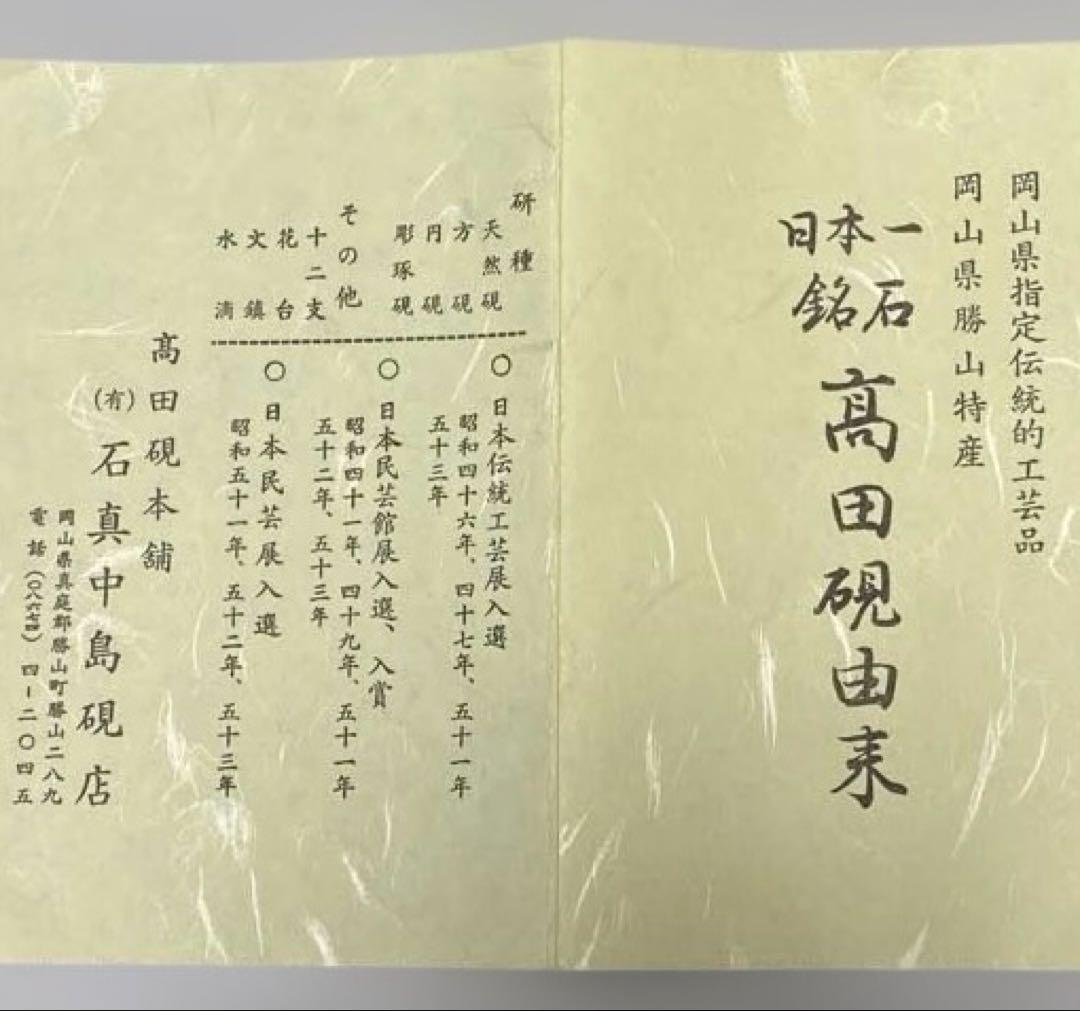 岡山県指定伝統的工芸品
岡山県勝山特産
日本一
銘石
高田硯由来
研種
天然硯
方硯
円硯
彫琢硯
その他
十二支
花台
文鎮
水滴
○日本伝統工芸展入選
昭和四十六年、四十七年、五十一年
五十三年
○日本民芸館展入選、入賞
昭和四十一年、四十九年、五十一年
五十二年、五十三年
○日本民芸展入選
昭和五十一年、五十二年、五十三年
髙田硯本舗
(有)石真中島硯店
岡山県真庭郡勝山町勝山二八九
電話(〇八六七四)四-二〇四五